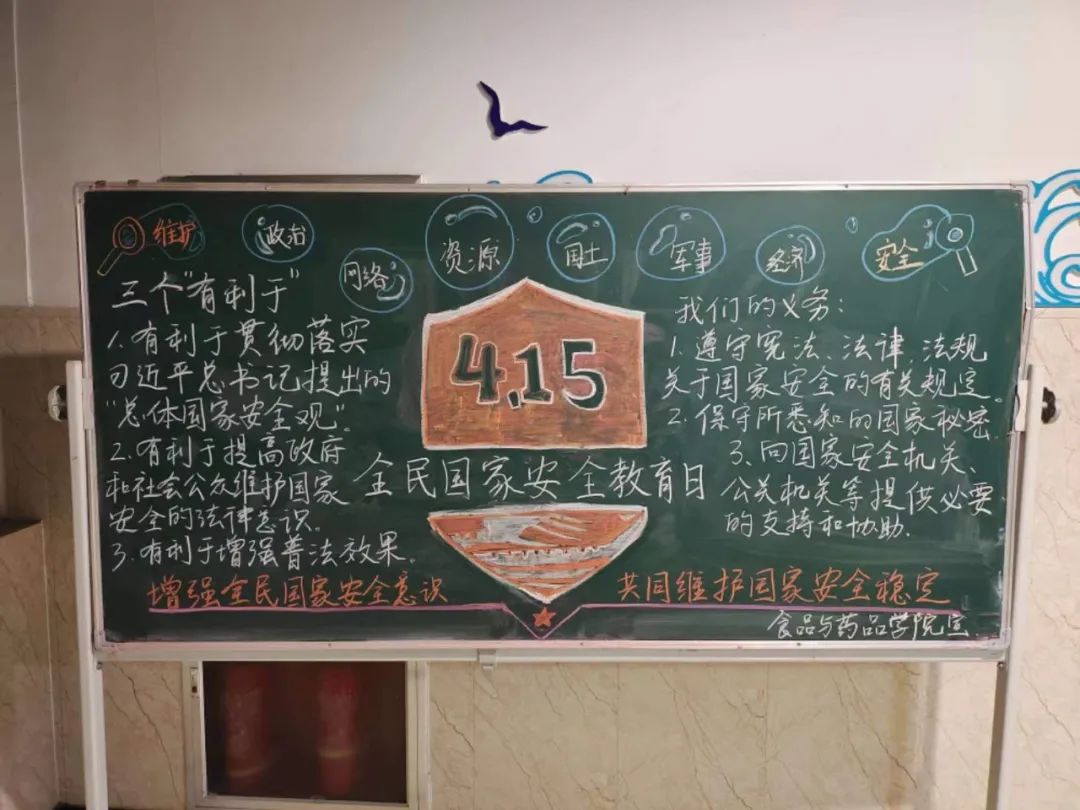 维护
政治
网络
资源
国土
军事
经济
安全
三个"有利于"
1.有利于贯彻落实
习近平总书记提出的
"总体国家安全观"。
2.有利于提高政府
和社会公众维护国家
安全的法律意识。
3.有利于增强普法效果。
4.15
全民国家安全教育日
我们的义务:
1.遵守宪法、法律、法规
关于国家安全的有关规定。
2.保守所悉知的国家秘密
3.向国家安全机关、
公关机关等提供必要
的支持和协助.
增强全民国家安全意识
共同维护国家安全稳定
食品与药品学院宣